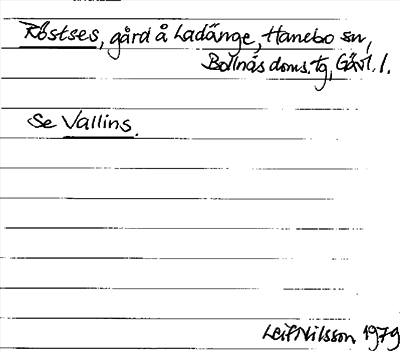 Röstses, gård å Ladänge, Hanebo sn,
Bollnäs doms.tg, Gävl. l.
Se Vallins.
Leif Nilsson 1979